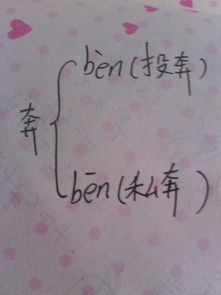 bèn(投奔)
奔
bēn(私奔)